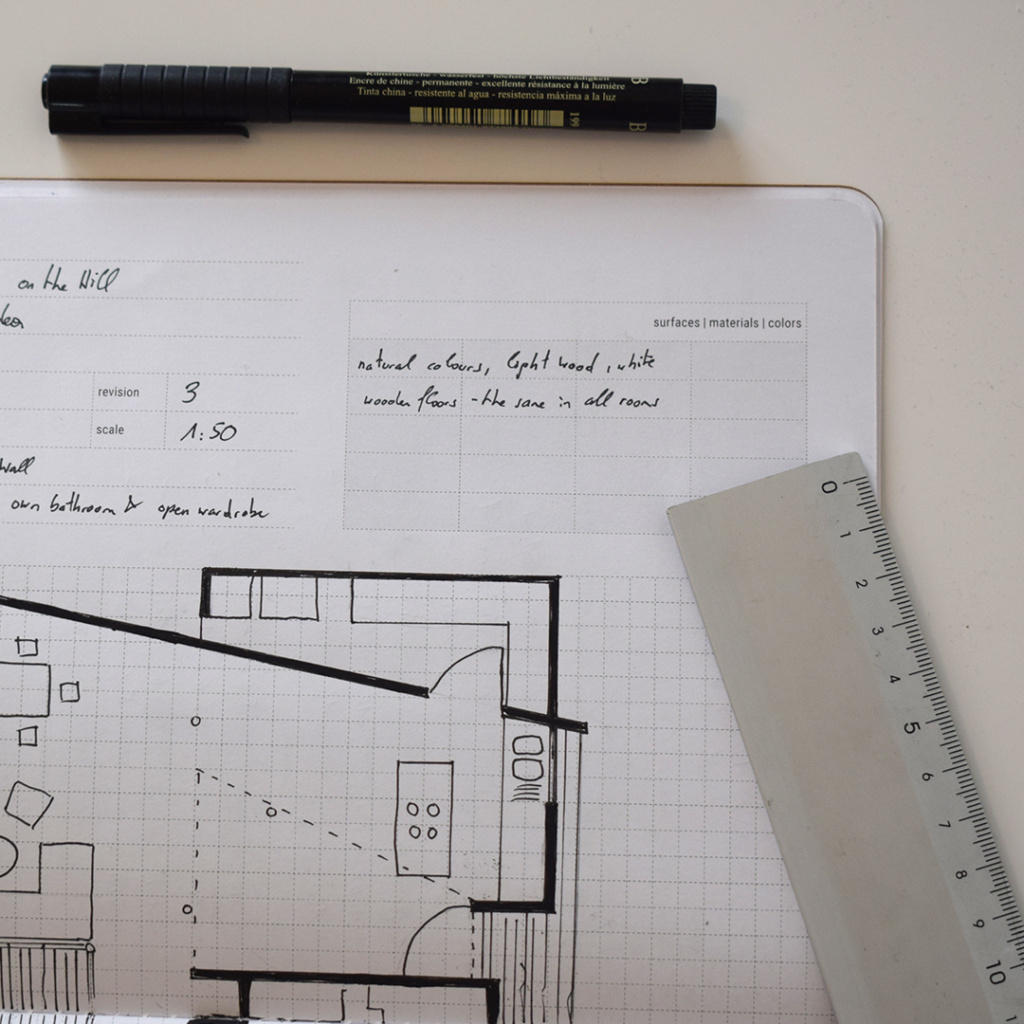 Künstlertusche - wasserfest - höchste Lichtbeständigkeit
Encre de chine - permanente - excellente résistance à la lumière
Tinta china - resistente al agua - resistencia máxima a la luz
199
B
B
on the Hill
surfaces | materials | colors
natural colours, light wood, white
wooden floors - the same in all rooms
revision 3
scale 1:50
wall
own bathroom & open wardrobe
0
1
2
3
4
5
6
7
8
9
10